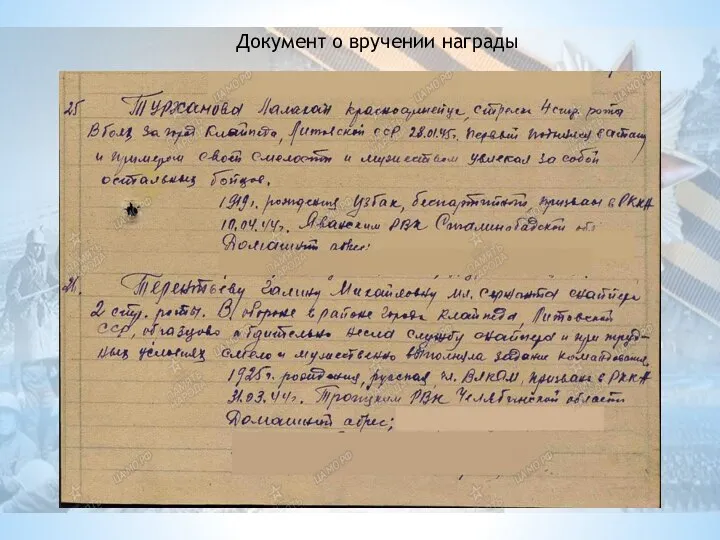 Документ о вручении награды
25 Турханова Палахан красноармейца, стрелк 4 стр. роты
В боях за порт Клайпеда, Литовской ССР 28.01.45г. первый поднялся в атаку
и примером своей смелости и мужеством увлекал за собой
остальных бойцов.
1919г. рождения узбек, беспартийный, призван в РККА
10.04.44г. Яванским РВК Сталинабадской об
Домашний адрес:
26. Терентьеву Галину Михайловну мл. сержанта снайпера
2 стр. роты. В обороне в районе города Клайпеда, Литовской
ССР, образцово и бдительно несла службу снайпера и при труд-
ных условиях смело и мужественно выполнила задание командования.
1925г. рождения, русская, чл. ВЛКСМ, призвана в РККА
31.03.44г. Троицким РВК Челябинской области
Домашний адрес;